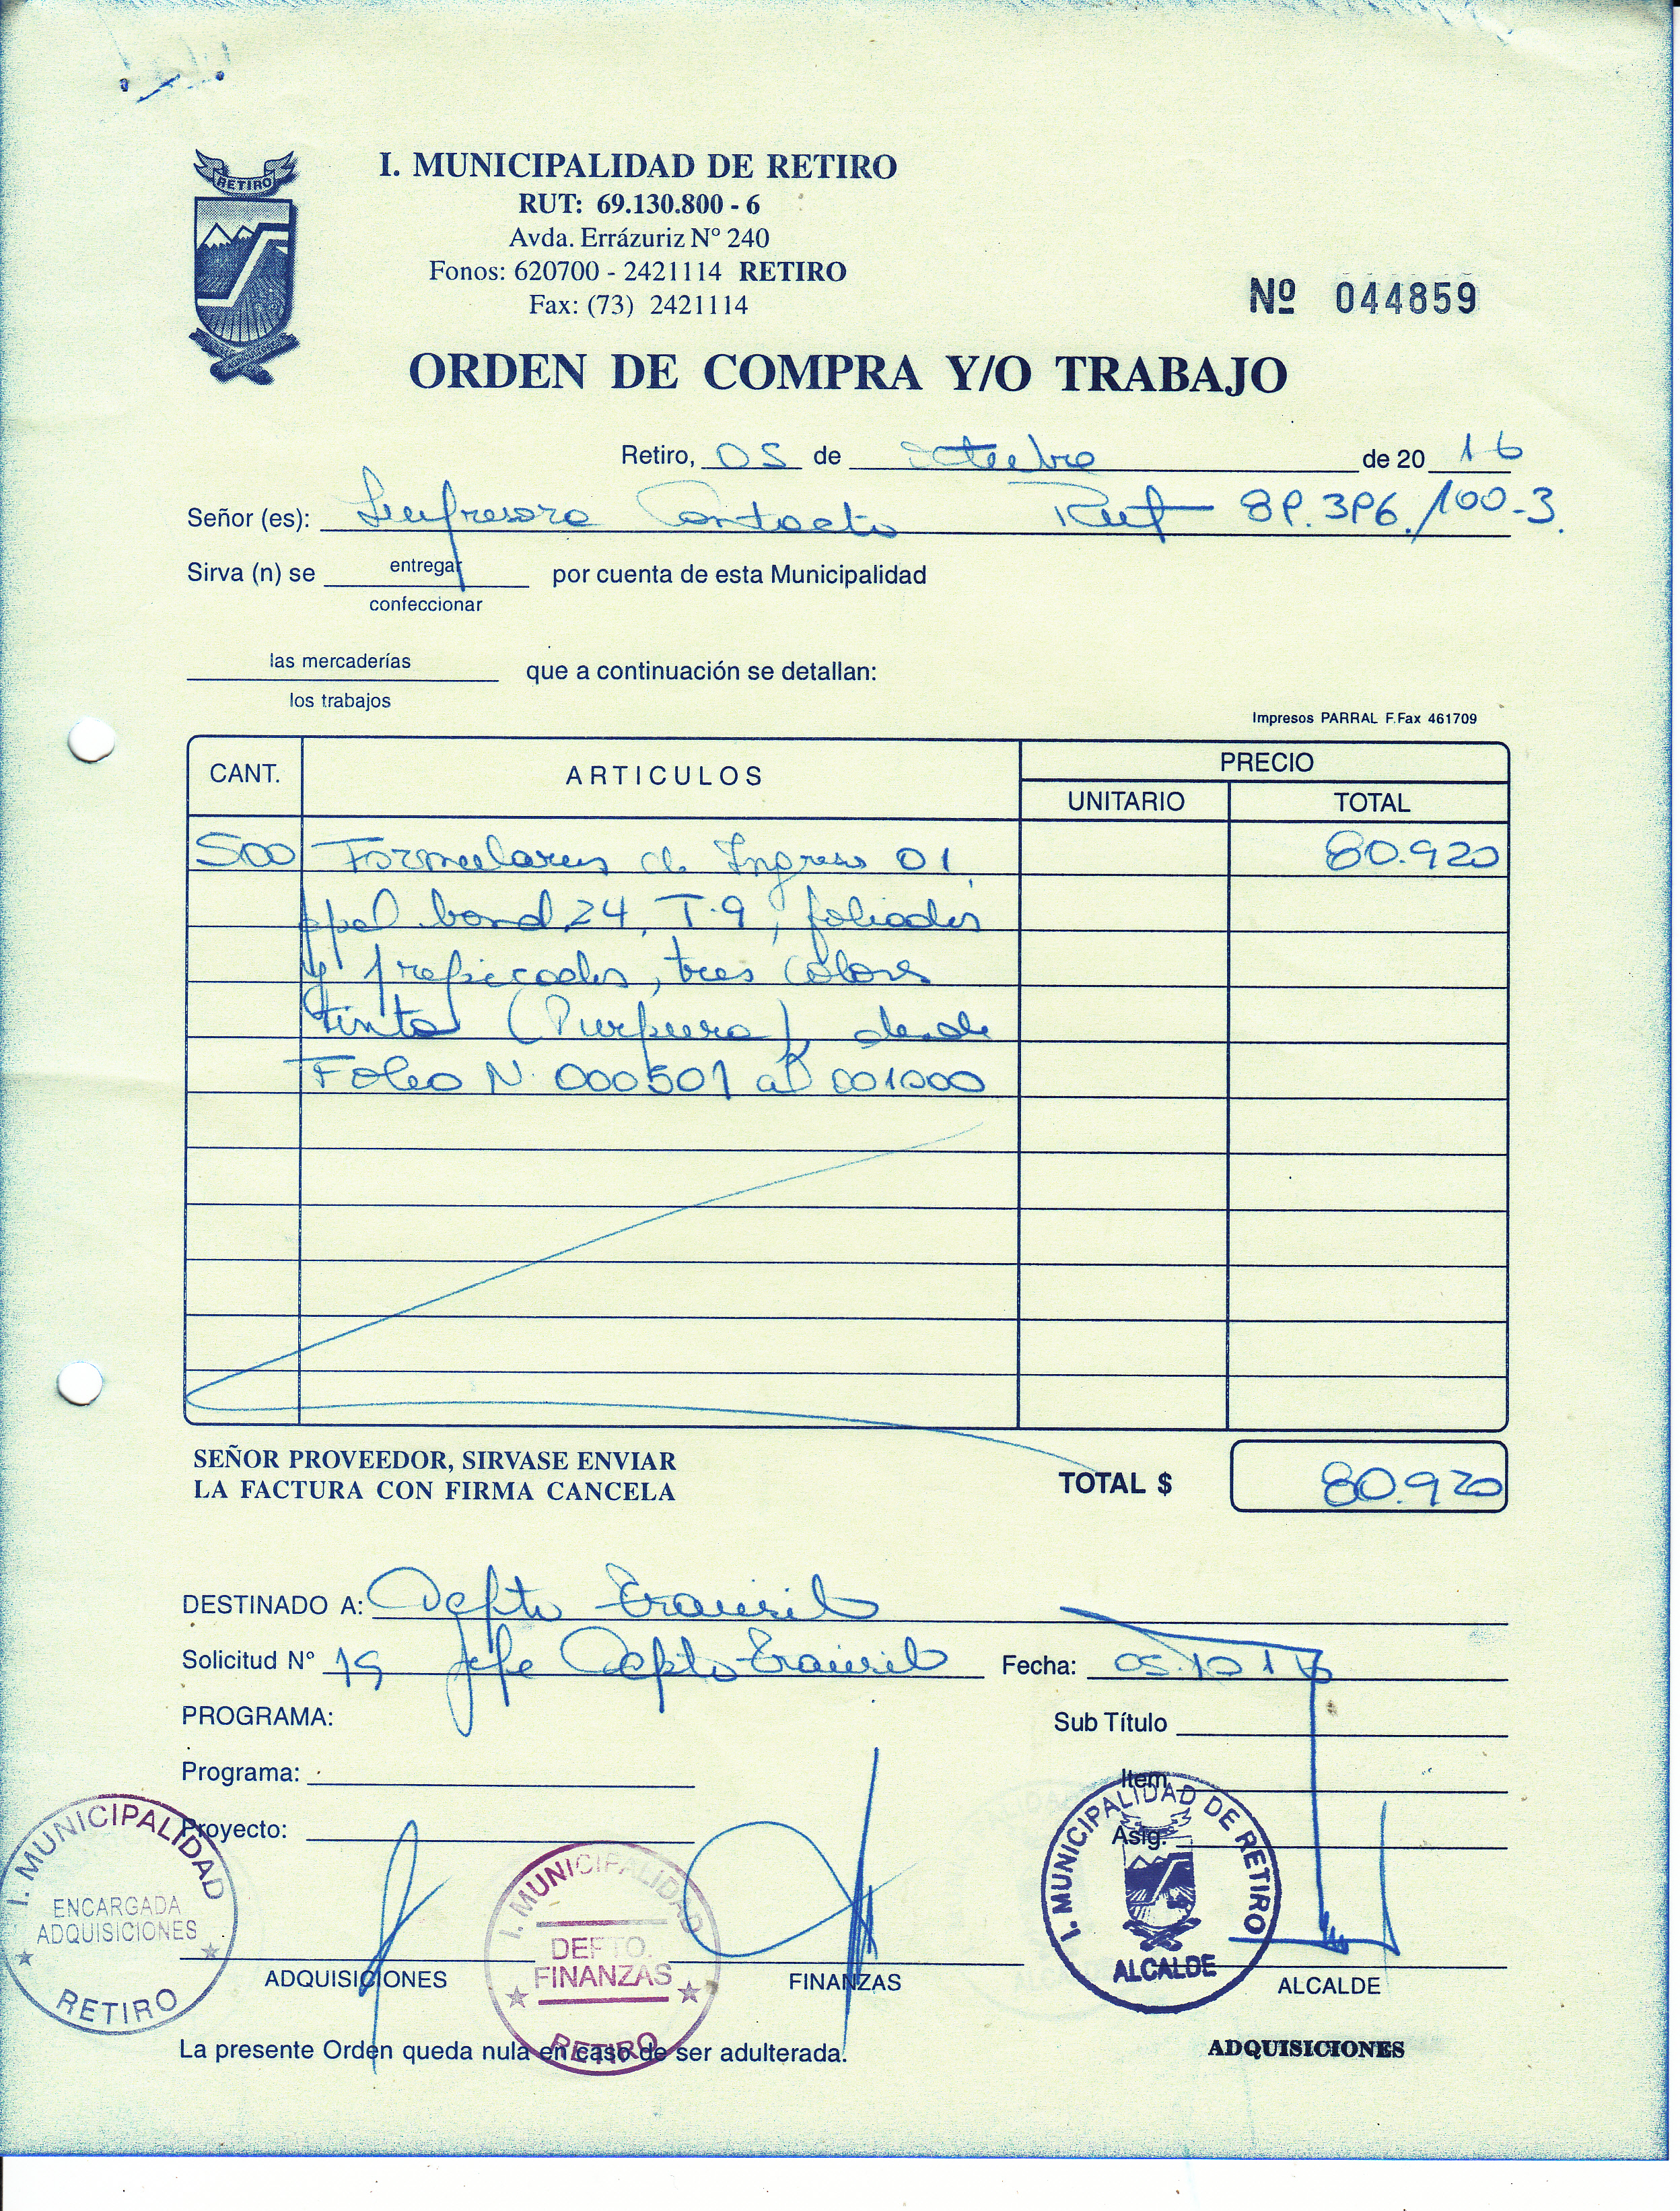 RETIRO
I. MUNICIPALIDAD DE RETIRO
RUT: 69.130.800 - 6
Avda. Errázuriz Nº 240
Fonos: 620700 - 2421114 RETIRO
Fax: (73) 2421114
Nº 044859
ORDEN DE COMPRA Y/O TRABAJO
Retiro, 05 de Octubre de 20 16
Señor (es): Impresora Contacto Rut 89.396.100-3.
Sirva (n) se entregar por cuenta de esta Municipalidad
confeccionar
las mercaderías que a continuación se detallan:
los trabajos
Impresos PARRAL F.Fax 461709
CANT. ARTICULOS PRECIO
UNITARIO TOTAL
500 Formularios de Ingreso 01, 80.920
ppel bond 24, T-9, foliados
y prepicados, tres colores
tinta (Purpura) desde
Folio N. 000501 al 001000
SEÑOR PROVEEDOR, SIRVASE ENVIAR
LA FACTURA CON FIRMA CANCELA
TOTAL $ 80.920
DESTINADO A: Depto
Solicitud Nº 19 Jefe Depto Fecha: 05.10.16
PROGRAMA: Sub Título
Programa: Item
Proyecto: Asig.
I. MUNICIPALIDAD
ENCARGADA
ADQUISICIONES
RETIRO
I. MUNICIPALIDAD
DEPTO.
FINANZAS
RETIRO
I. MUNICIPALIDAD DE RETIRO
ALCALDE
ADQUISICIONES FINANZAS ALCALDE
La presente Orden queda nula en caso de ser adulterada.
ADQUISICIONES